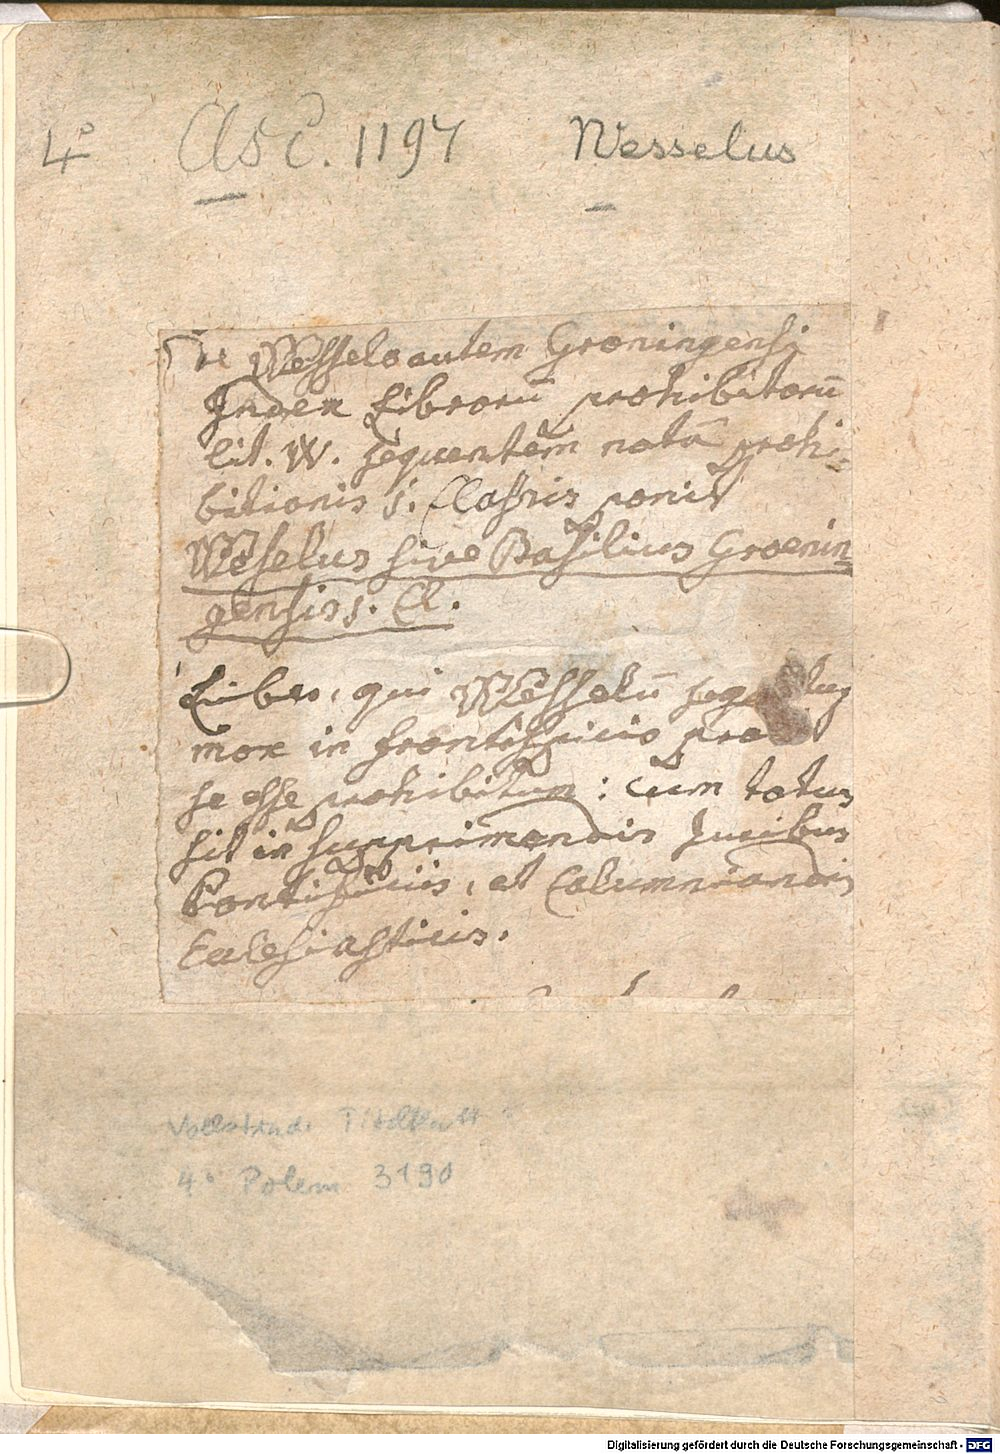 4° Asc. 1197 Wesselus
De Wesselo autem Groningensi
Index Librorū prohibitorū
lit. W. sequentem notā prohi-
bitionis 1. Classis ponit
Weselus sive Basilius Groenin-
gensis 1. Cl.
Liber, qui Wesselū
mox in frontispicio
se esse prohibitum: cum totus
sit in supprimendis
Pontificiis, et Calumniandis
Ecclesiasticis.
Vollständ. Titelblatt
4° Polem 3190
Digitalisierung gefördert durch die Deutsche Forschungsgemeinschaft - DFG